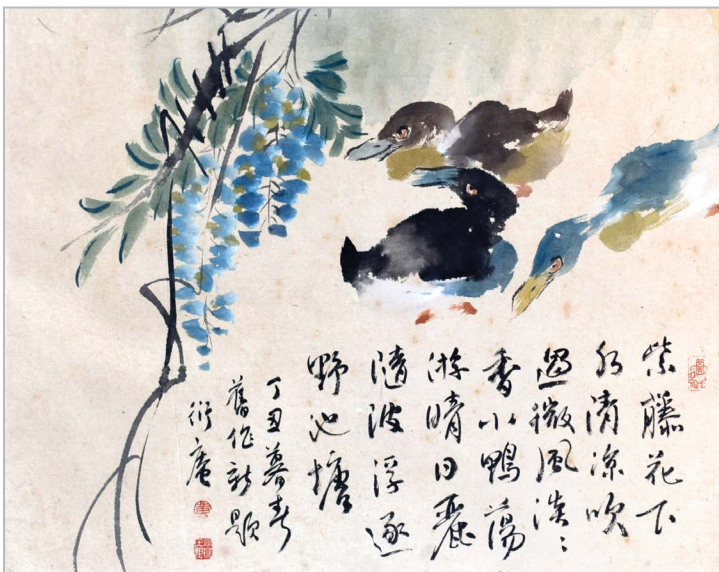 紫藤花下
水清凉吹
過微風淡〻
香小鴨蕩
游晴日麗
隨波浮逐
野池塘
丁丑暮春
舊作新題
衍庵